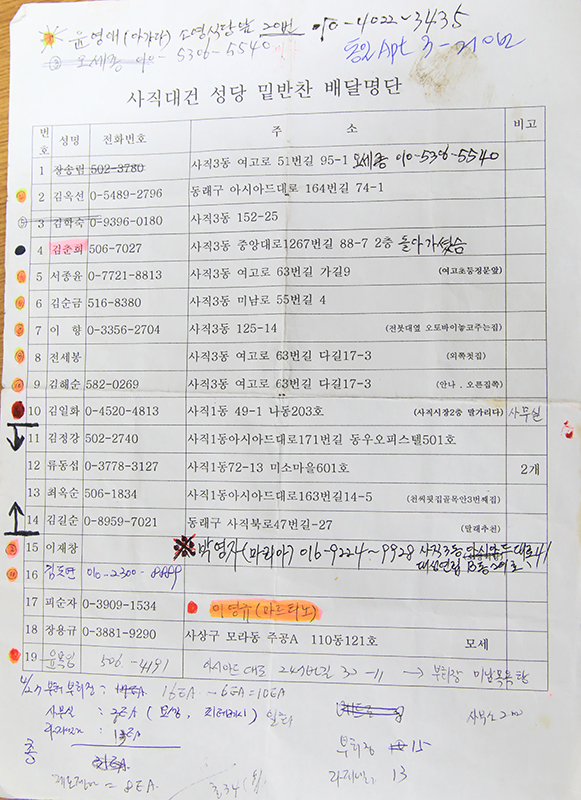 윤영애(아가다) 소영식당앞 20번 010-4022-3435
오세종 010-5306-5540
동일Apt 3-210번
사직대건 성당 밑반찬 배달명단
번호 성명 전화번호 주 소 비고
1 장송림 502-3780 사직3동 여고로 51번길 95-1 오세종 010-5306-5540
2 김옥선 0-5489-2796 동래구 아시아드대로 164번길 74-1
3 김학숙 0-9396-0180 사직3동 152-25
4 김준희 506-7027 사직3동 중앙대로1267번길 88-7 2층 돌아가셨슴
5 서종윤 0-7721-8813 사직3동 여고로 63번길 가길9 (여고초등정문앞)
6 김순금 516-8380 사직3동 미남로 55번길 4
7 이 향 0-3356-2704 사직3동 125-14 (전봇대옆 오토바이놓고주는집)
8 전세봉 사직3동 여고로 63번길 다길17-3 (외쪽첫집)
9 김해순 582-0269 사직3동 여고로 63번길 다길17-3 (안나 . 오른집쪽)
10 김일화 0-4520-4813 사직1동 49-1 나동203호 (사직시장2층 딸가리다) 사무실
11 김정강 502-2740 사직1동아시아드대로171번길 동우오피스텔501호
12 류동섭 0-3778-3127 사직1동72-13 미소마을601호 2개
13 최옥순 506-1834 사직1동아시아드대로163번길14-5 (천씨찟집골목안3번째집)
14 김길순 0-8959-7021 동래구 사직북로47번길-27 (말래추천)
15 이재창 ※박영자(마리아) 016-9224-9928 사직3동 아시아드대로
대성연립 B동
16 016-2300-8889
17 피순자 0-3909-1534 이영규(마르티노)
18 장용규 0-3881-9290 사상구 모라동 주공A 110동121호 모세
19 506-4191 아시아드대로 245번길 30-11 → 부회장 미남목욕탕
부회장 : 16EA - 6EA = 10EA
사무실 : EA
총
부회장 15
13
= 8EA